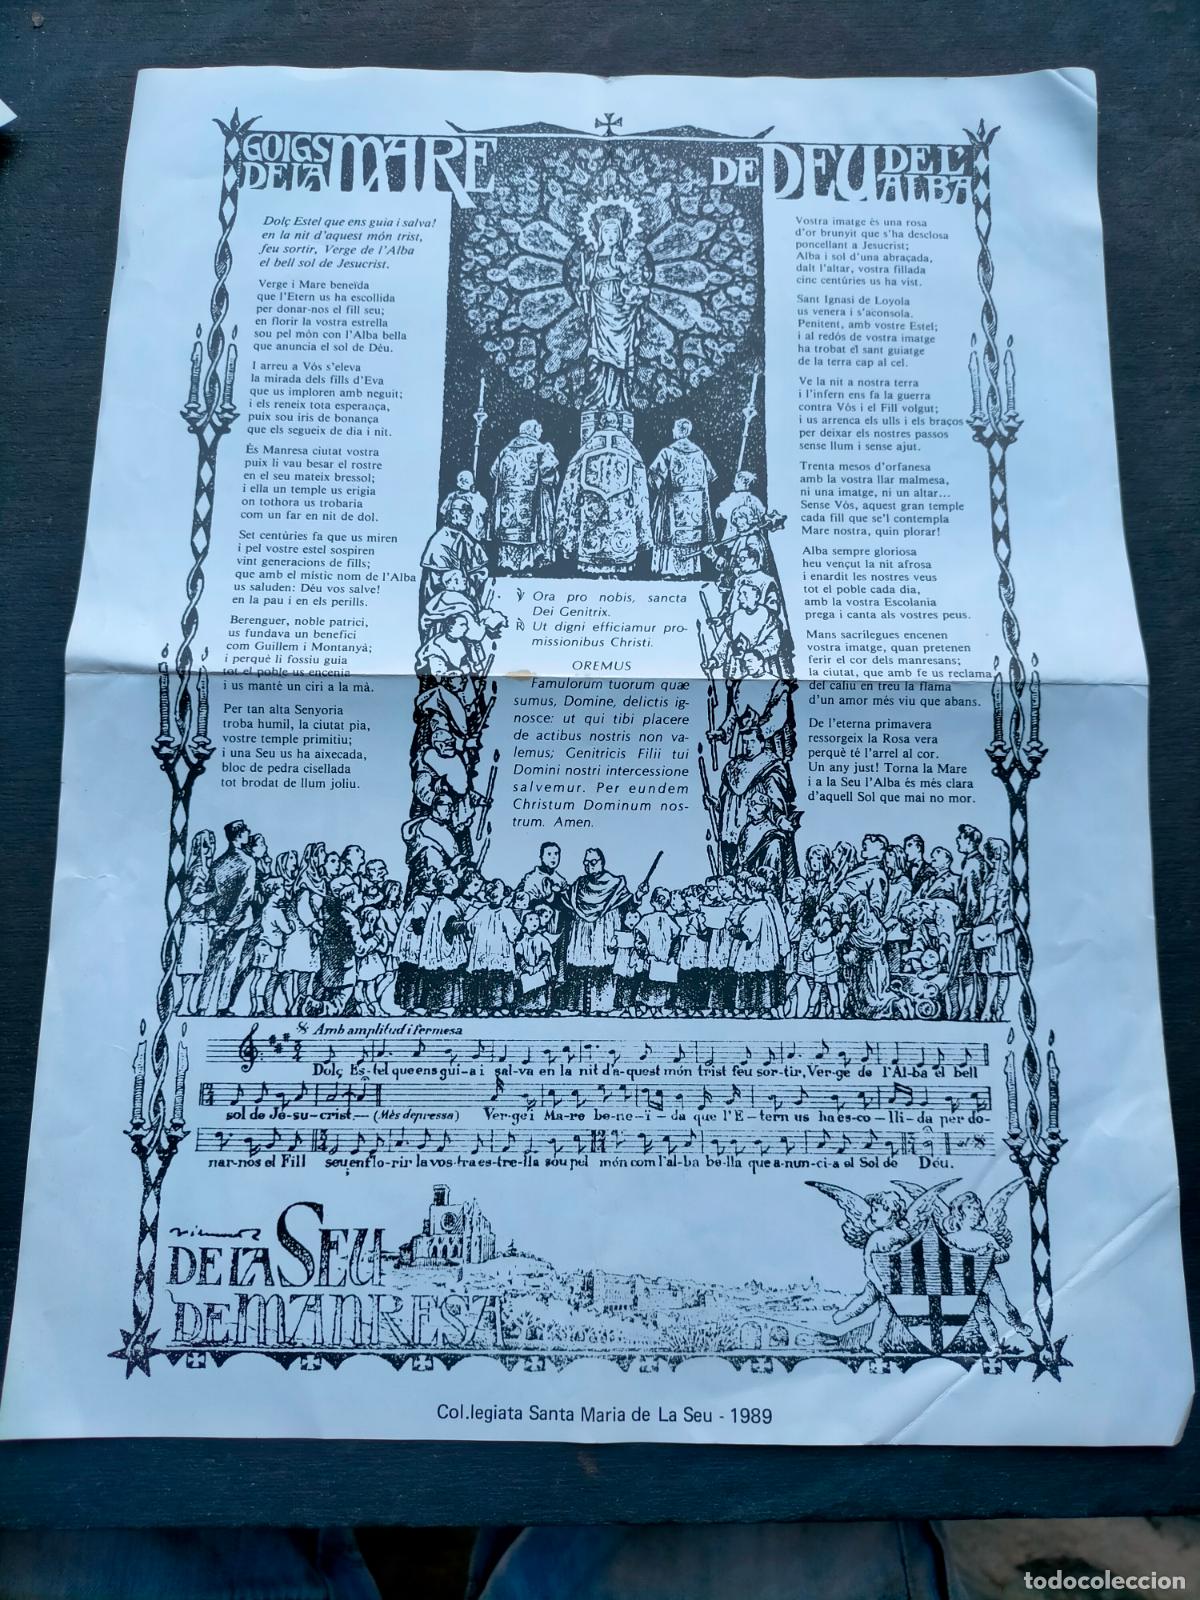 GOIGS DE LA MARE DE DEU DE L'ALBA
Dolç Estel que ens guia i salva!
en la nit d'aquest món trist,
feu sortir, Verge de l'Alba
el bell sol de Jesucrist.
Verge i Mare beneïda
que l'Etern us ha escollida
per donar-nos el fill seu;
en florir la vostra estrella
sou pel món con l'Alba bella
que anuncia el sol de Déu.
I arreu a Vós s'eleva
la mirada dels fills d'Eva
que us imploren amb neguit;
i els reneix tota esperança,
puix sou iris de bonança
que els segueix de dia i nit.
És Manresa ciutat vostra
puix li vau besar el rostre
en el seu mateix bressol;
i ella un temple us erigia
on tothora us trobaria
com un far en nit de dol.
Set centúries fa que us miren
i pel vostre estel sospiren
vint generacions de fills;
que amb el místic nom de l'Alba
us saluden: Déu vos salve!
en la pau i en els perills.
Berenguer, noble patrici,
us fundava un benefici
com Guillem i Montanyà;
i perquè li fossiu guia
tot el poble us encenia
i us manté un ciri a la mà.
Per tan alta Senyoria
troba humil, la ciutat pia,
vostre temple primitiu;
i una Seu us ha aixecada,
bloc de pedra cisellada
tot brodat de llum joliu.
℣ Ora pro nobis, sancta
Dei Genitrix.
℟ Ut digni efficiamur pro-
missionibus Christi.
OREMUS
Famulorum tuorum quae
sumus, Domine, delictis ig-
nosce: ut qui tibi placere
de actibus nostris non va-
lemus; Genitricis Filii tui
Domini nostri intercessione
salvemur. Per eundem
Christum Dominum nos-
trum. Amen.
Vostra imatge és una rosa
d'or brunyit que s'ha desclosa
poncellant a Jesucrist;
Alba i sol d'una abraçada,
dalt l'altar, vostra fillada
cinc centúries us ha vist.
Sant Ignasi de Loyola
us venera i s'aconsola.
Penitent, amb vostre Estel;
i al redós de vostra imatge
ha trobat el sant guiatge
de la terra cap al cel.
Ve la nit a nostra terra
i l'infern ens fa la guerra
contra Vós i el Fill volgut;
i us arrenca els ulls i els braços
per deixar els nostres passos
sense llum i sense ajut.
Trenta mesos d'orfanesa
amb la vostra llar malmesa,
ni una imatge, ni un altar...
Sense Vós, aquest gran temple
cada fill que se'l contempla
Mare nostra, quin plorar!
Alba sempre gloriosa
heu vençut la nit afrosa
i enardit les nostres veus
tot el poble cada dia,
amb la vostra Escolania
prega i canta als vostres peus.
Mans sacrílegues encenen
vostra imatge, quan pretenen
ferir el cor dels manresans;
la ciutat, que amb fe us reclama
del caliu en treu la flama
d'un amor més viu que abans.
De l'eterna primavera
ressorgeix la Rosa vera
perquè té l'arrel al cor.
Un any just! Torna la Mare
i a la Seu l'Alba és més clara
d'aquell Sol que mai no mor.
Amb amplitud i fermesa
Dolç Es-tel que ens gui-a i sal-va en la nit d'a-quest món trist feu sor-tir, Ver-ge de l'Al-ba el bell
sol de Je-su-crist.— (Més depressa) Ver-ge i Ma-re be-ne-ï-da que l'E-tern us ha es-co-lli-da per do-
nar-nos el Fill seu; en flo-rir la vos-tra es-tre-lla sou pel món com l'al-ba be-lla que a-nun-ci-a el Sol de Déu.
DE LA SEU
DE MANRESA
Col.legiata Santa Maria de La Seu - 1989
todocoleccion